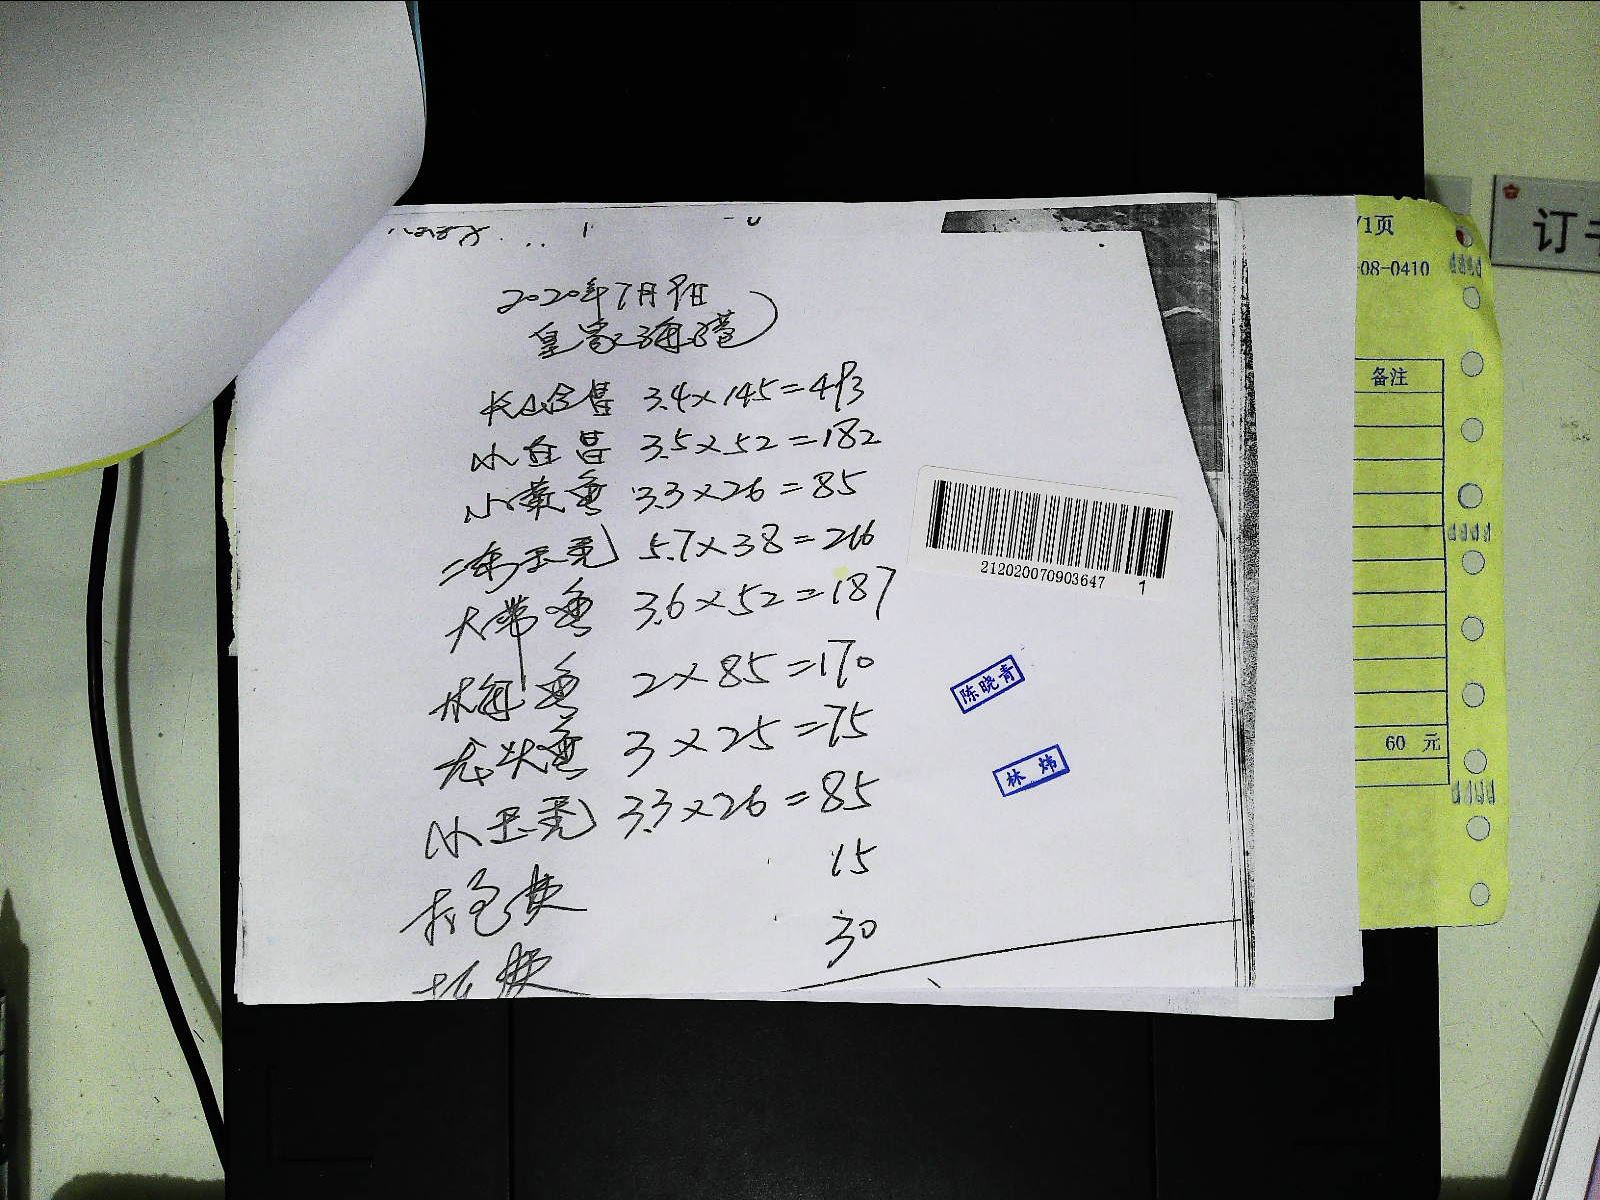 2020年7月9日
皇家海港
3.4×145=493
小白昌 3.5×52=182
小黄鱼 3.3×26=85
5.7×38=216
大带鱼 3.6×52=187
鱼 2×85=170
龙头鱼 3×25=75
小玉秃 3.3×26=85
打包费 15
费 30
212020070903647 1
陈晓青
林炜
/1页
-08-0410
备注
60 元
订